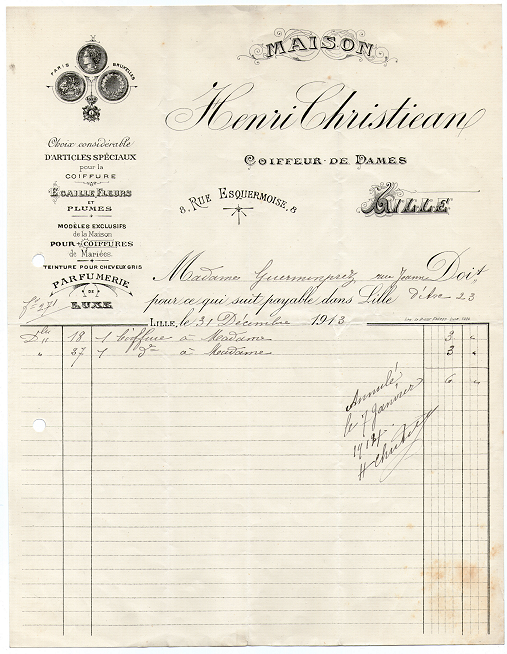 PARIS BRUXELLES
Choix considérable
D'ARTICLES SPÉCIAUX
pour la
COIFFURE
ECAILLE FLEURS
ET
PLUMES
MODÈLES EXCLUSIFS
de la Maison
POUR COIFFURES
de Mariées.
TEINTURE POUR CHEVEUX GRIS
PARFUMERIE
DE
LUXE
MAISON
Henri Christiean
COIFFEUR DE DAMES
8, RUE ESQUERMOISE, 8
LILLE
Madame Guermonprez, rue Jeanne Doit
pour ce qui suit payable dans Lille d'Arc 23
fo 271
LILLE, le 31 Décembre 1913
18 1 Coiffure à Madame 3 "
" 27 1 do à Madame 3 "
6 "
Annulé
le 7 Janvier
1914
H Christiean